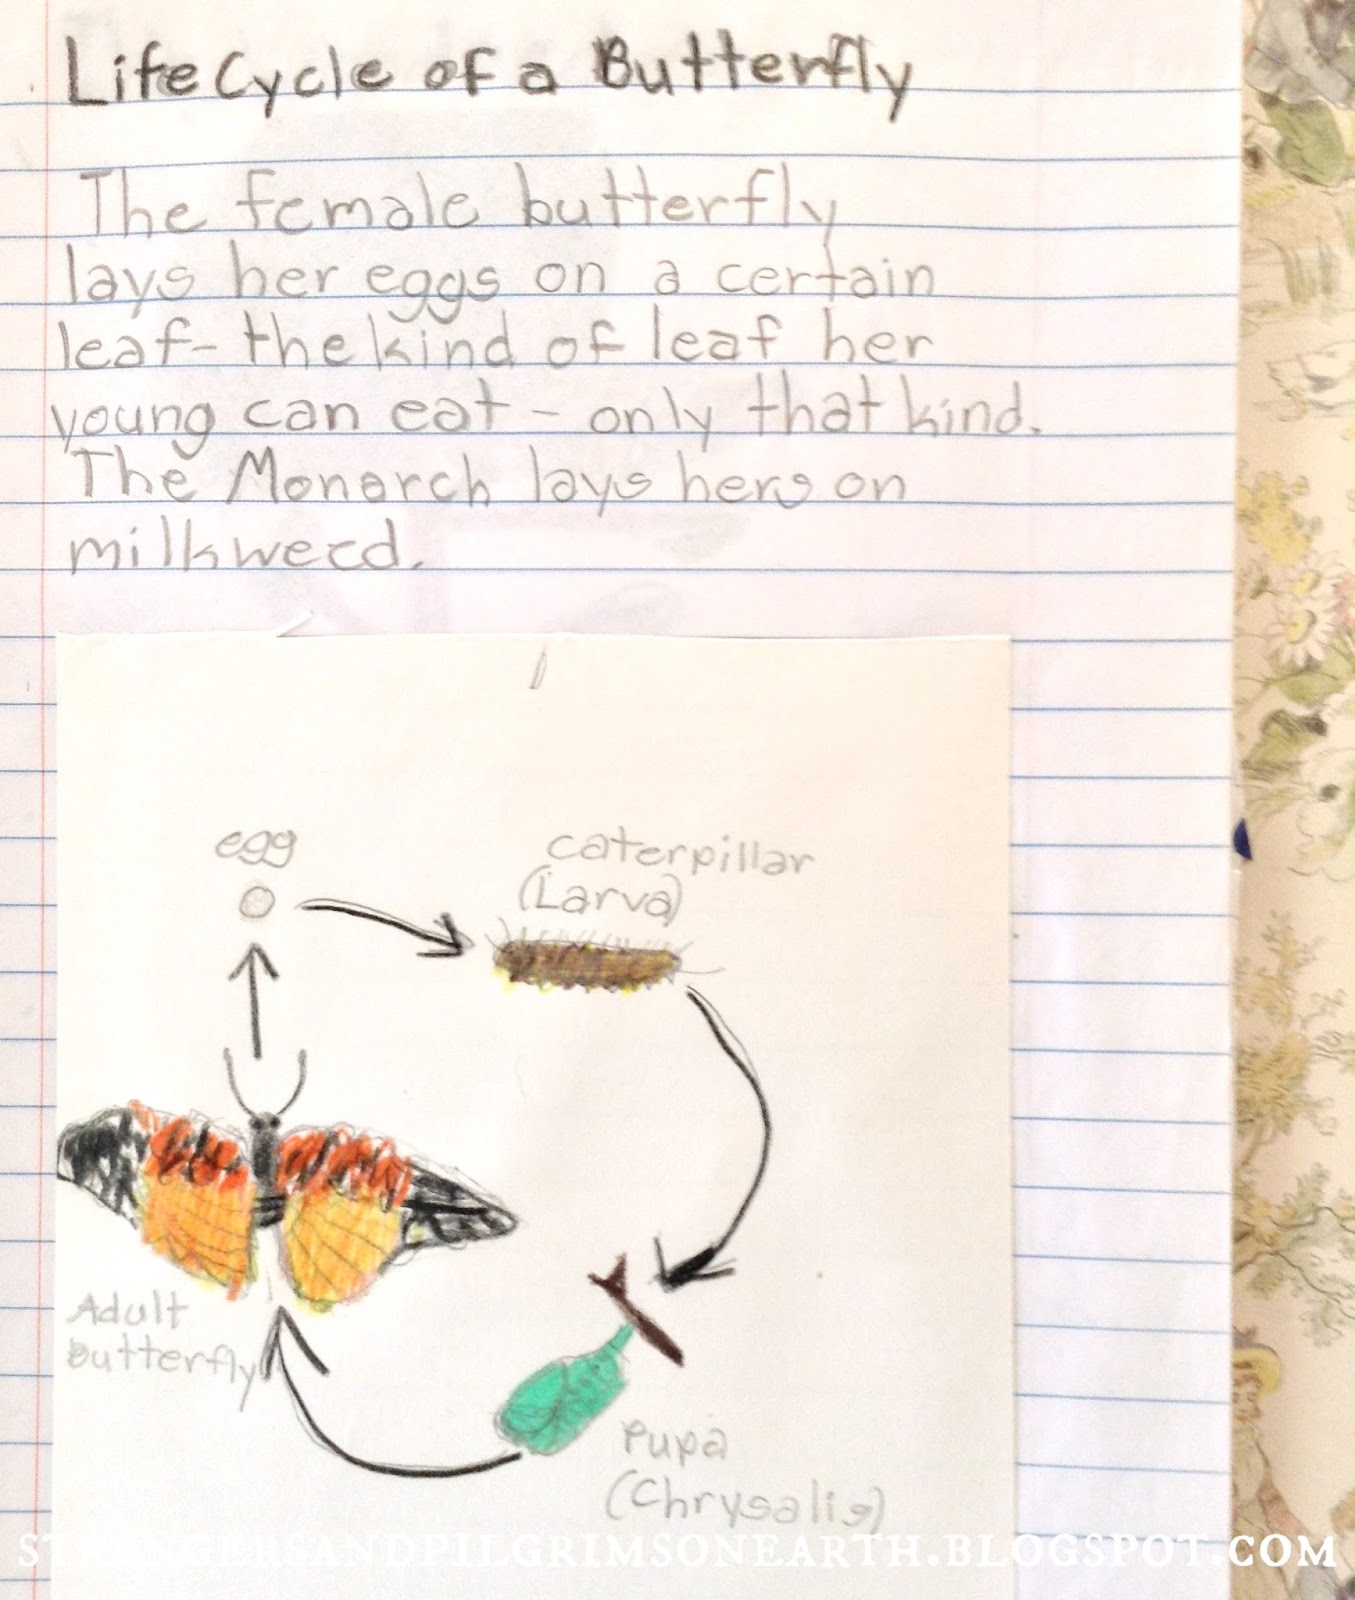 Life Cycle of a Butterfly
The female butterfly
lays her eggs on a certain
leaf- the kind of leaf her
young can eat - only that kind.
The Monarch lays hers on
milkweed.
egg
caterpillar
(Larva)
Adult
Butterfly
Pupa
(Chrysalis)
STRANGERSANDPILGRIMSONEARTH.BLOGSPOT.COM